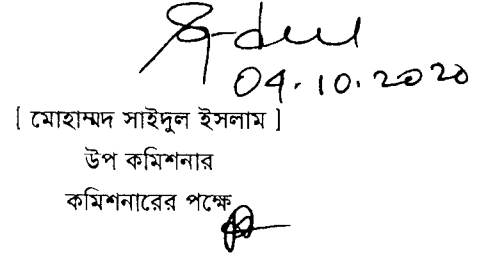 04.10.2020
[ মোহাম্মদ সাইদুল ইসলাম ]
উপ কমিশনার
কমিশনারের পক্ষে